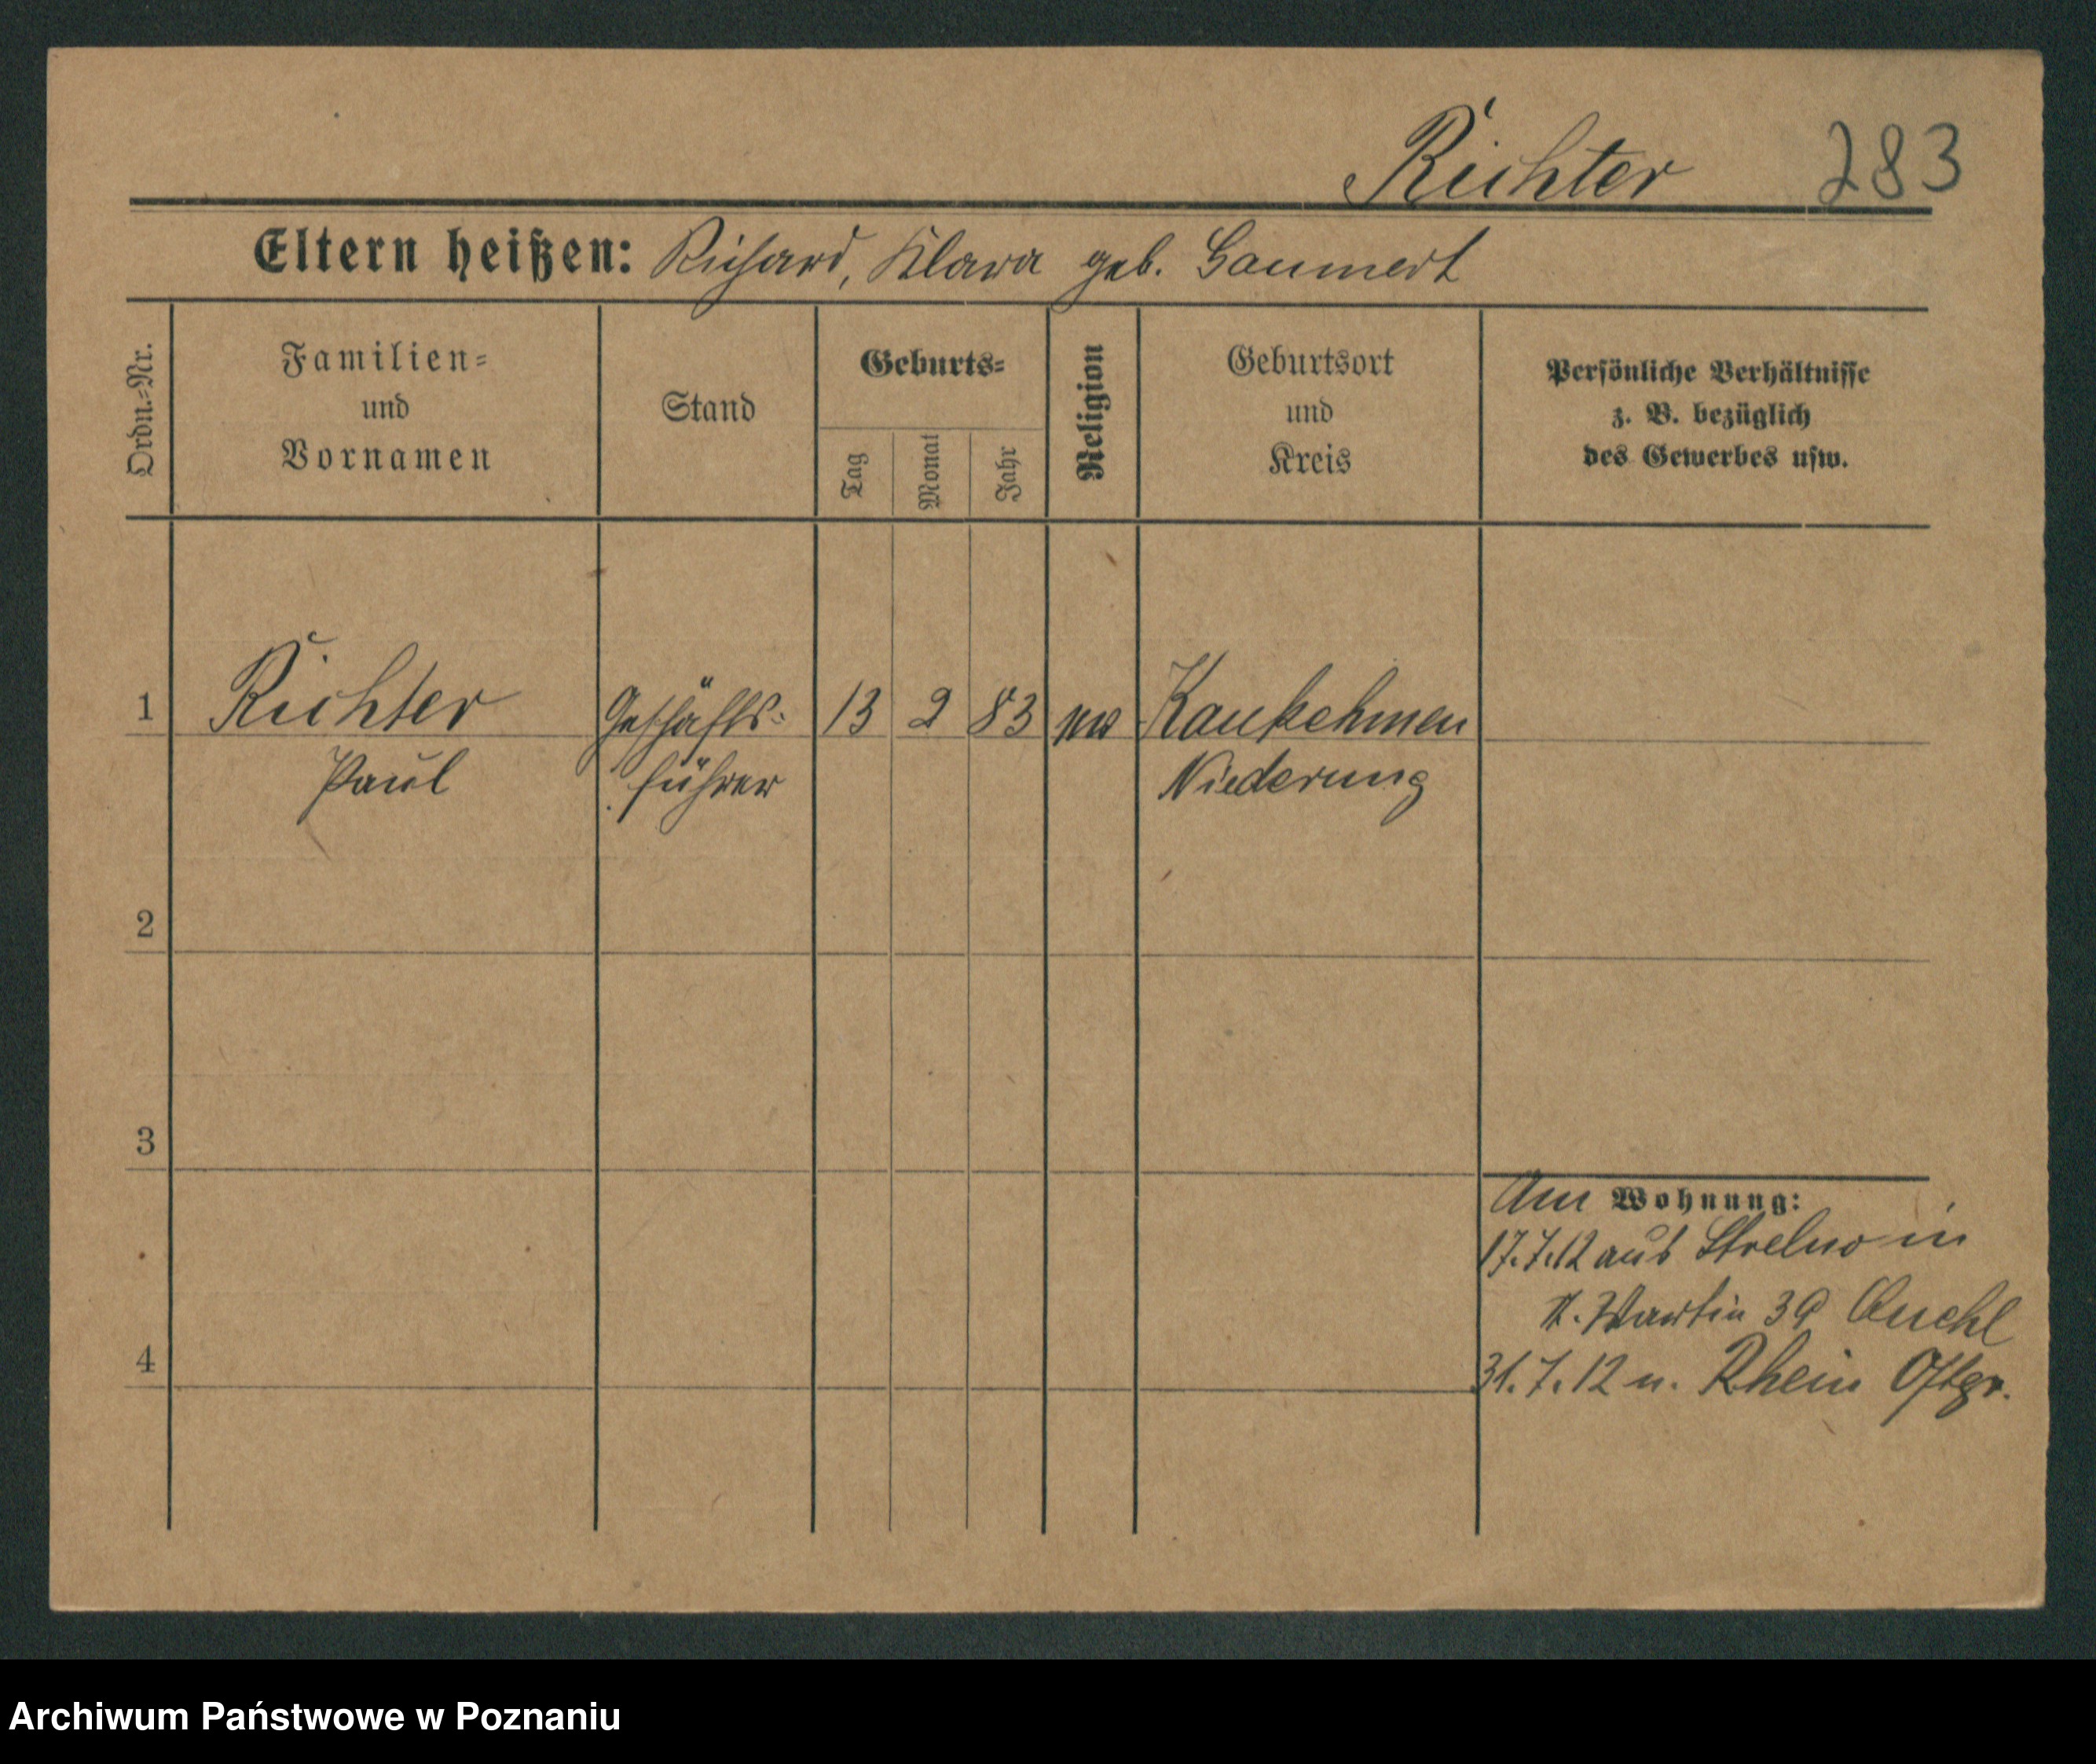 Richter 283
Eltern heißen: Richard, Klara geb. Saumert
Ordn.-Nr.
Familien-
und
Vornamen
Stand
Geburts-
Tag
Monat
Jahr
Religion
Geburtsort
und
Kreis
Persönliche Verhältnisse
z. B. bezüglich
des Gewerbes usw.
1 Richter Geschäfts- 13 2 83 Kaukehmen
Paul führer Niederung
2
3
Am Wohnung:
17.7.12 aus Strelno in
St. Martin 39
4
31.7.12 n. Rhein Ostpr.
Archiwum Państwowe w Poznaniu